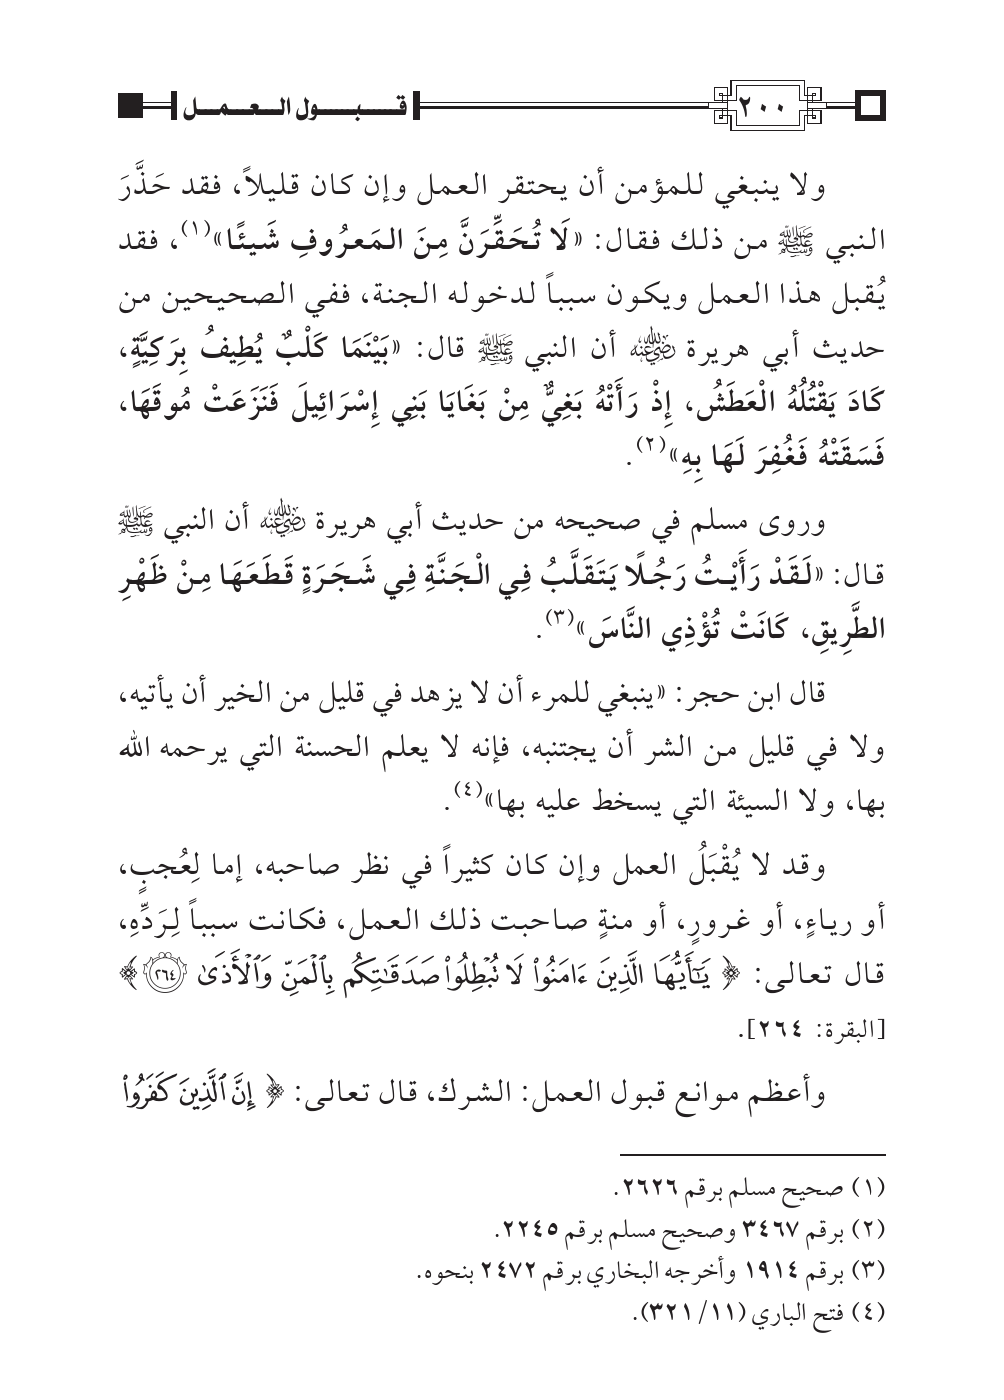 ٢٠٠ قبول العمل
ولا ينبغي للمؤمن أن يحتقر العمل وإن كان قليلاً، فقد حَذَّرَ
النبي ﷺ من ذلك فقال: «لَا تُحَقِّرَنَّ مِنَ المَعرُوفِ شَيئًا»(١)، فقد
يُقبل هذا العمل ويكون سبباً لدخوله الجنة، ففي الصحيحين من
حديث أبي هريرة رضي الله عنه أن النبي ﷺ قال: «بَيْنَمَا كَلْبٌ يُطِيفُ بِرَكِيَّةٍ،
كَادَ يَقْتُلُهُ الْعَطَشُ، إِذْ رَأَتْهُ بَغِيٌّ مِنْ بَغَايَا بَنِي إِسْرَائِيلَ فَنَزَعَتْ مُوقَهَا،
فَسَقَتْهُ فَغُفِرَ لَهَا بِهِ»(٢).
وروى مسلم في صحيحه من حديث أبي هريرة رضي الله عنه أن النبي ﷺ
قال: «لَقَدْ رَأَيْتُ رَجُلًا يَتَقَلَّبُ فِي الْجَنَّةِ فِي شَجَرَةٍ قَطَعَهَا مِنْ ظَهْرِ
الطَّرِيقِ، كَانَتْ تُؤْذِي النَّاسَ»(٣).
قال ابن حجر: «ينبغي للمرء أن لا يزهد في قليل من الخير أن يأتيه،
ولا في قليل من الشر أن يجتنبه، فإنه لا يعلم الحسنة التي يرحمه الله
بها، ولا السيئة التي يسخط عليه بها»(٤).
وقد لا يُقْبَلُ العمل وإن كان كثيراً في نظر صاحبه، إما لِعُجبٍ،
أو رياءٍ، أو غرورٍ، أو منةٍ صاحبت ذلك العمل، فكانت سبباً لِرَدِّهِ،
قال تعالى: ﴿ يَٰٓأَيُّهَا الَّذِينَ ءَامَنُواْ لَا تُبْطِلُواْ صَدَقَٰتِكُم بِٱلْمَنِّ وَٱلْأَذَىٰ ٢٦٤ ﴾
[البقرة: ٢٦٤].
وأعظم موانع قبول العمل: الشرك، قال تعالى: ﴿ إِنَّ ٱلَّذِينَ كَفَرُواْ
(١) صحيح مسلم برقم ٢٦٢٦.
(٢) برقم ٣٤٦٧ وصحيح مسلم برقم ٢٢٤٥.
(٣) برقم ١٩١٤ وأخرجه البخاري برقم ٢٤٧٢ بنحوه.
(٤) فتح الباري (١١/ ٣٢١).